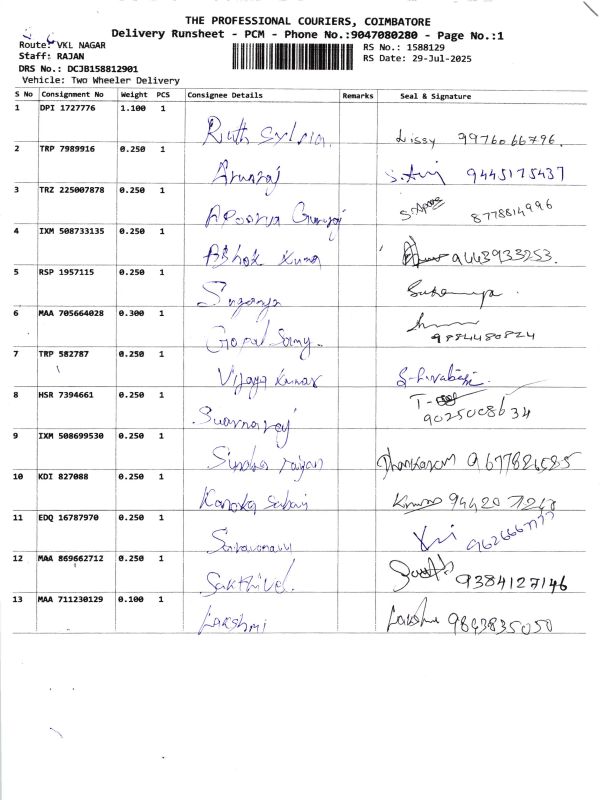 THE PROFESSIONAL COURIERS, COIMBATORE
Delivery Runsheet - PCM - Phone No.:9047080280 - Page No.:1
Route: VKL NAGAR
RS No.: 1588129
Staff: RAJAN
RS Date: 29-Jul-2025
DRS No.: DCJB158812901
Vehicle: Two Wheeler Delivery
S No Consignment No Weight PCS Consignee Details Remarks Seal & Signature
1 DPI 1727776 1.100 1 Ruth Sylvia. Lissy 9976066796.
2 TRP 7989916 0.250 1 Arunraj 9445175437
3 TRZ 225007878 0.250 1 Apoorva 8778814996
4 IXM 508733135 0.250 1 Ashok Kumar 9443933253.
5 RSP 1957115 0.250 1
6 MAA 705664028 0.300 1 Gopal Samy. 9884480824
7 TRP 582787 0.250 1 Vijaya Kumar
8 HSR 7394661 0.250 1 Suvarnaraj
9 IXM 508699530 0.250 1
10 KDI 827088 0.250 1
11 EDQ 16787970 0.250 1
12 MAA 869662712 0.250 1 Sakthivel. 9384127146
13 MAA 711230129 0.100 1 Lakshmi 9843835050